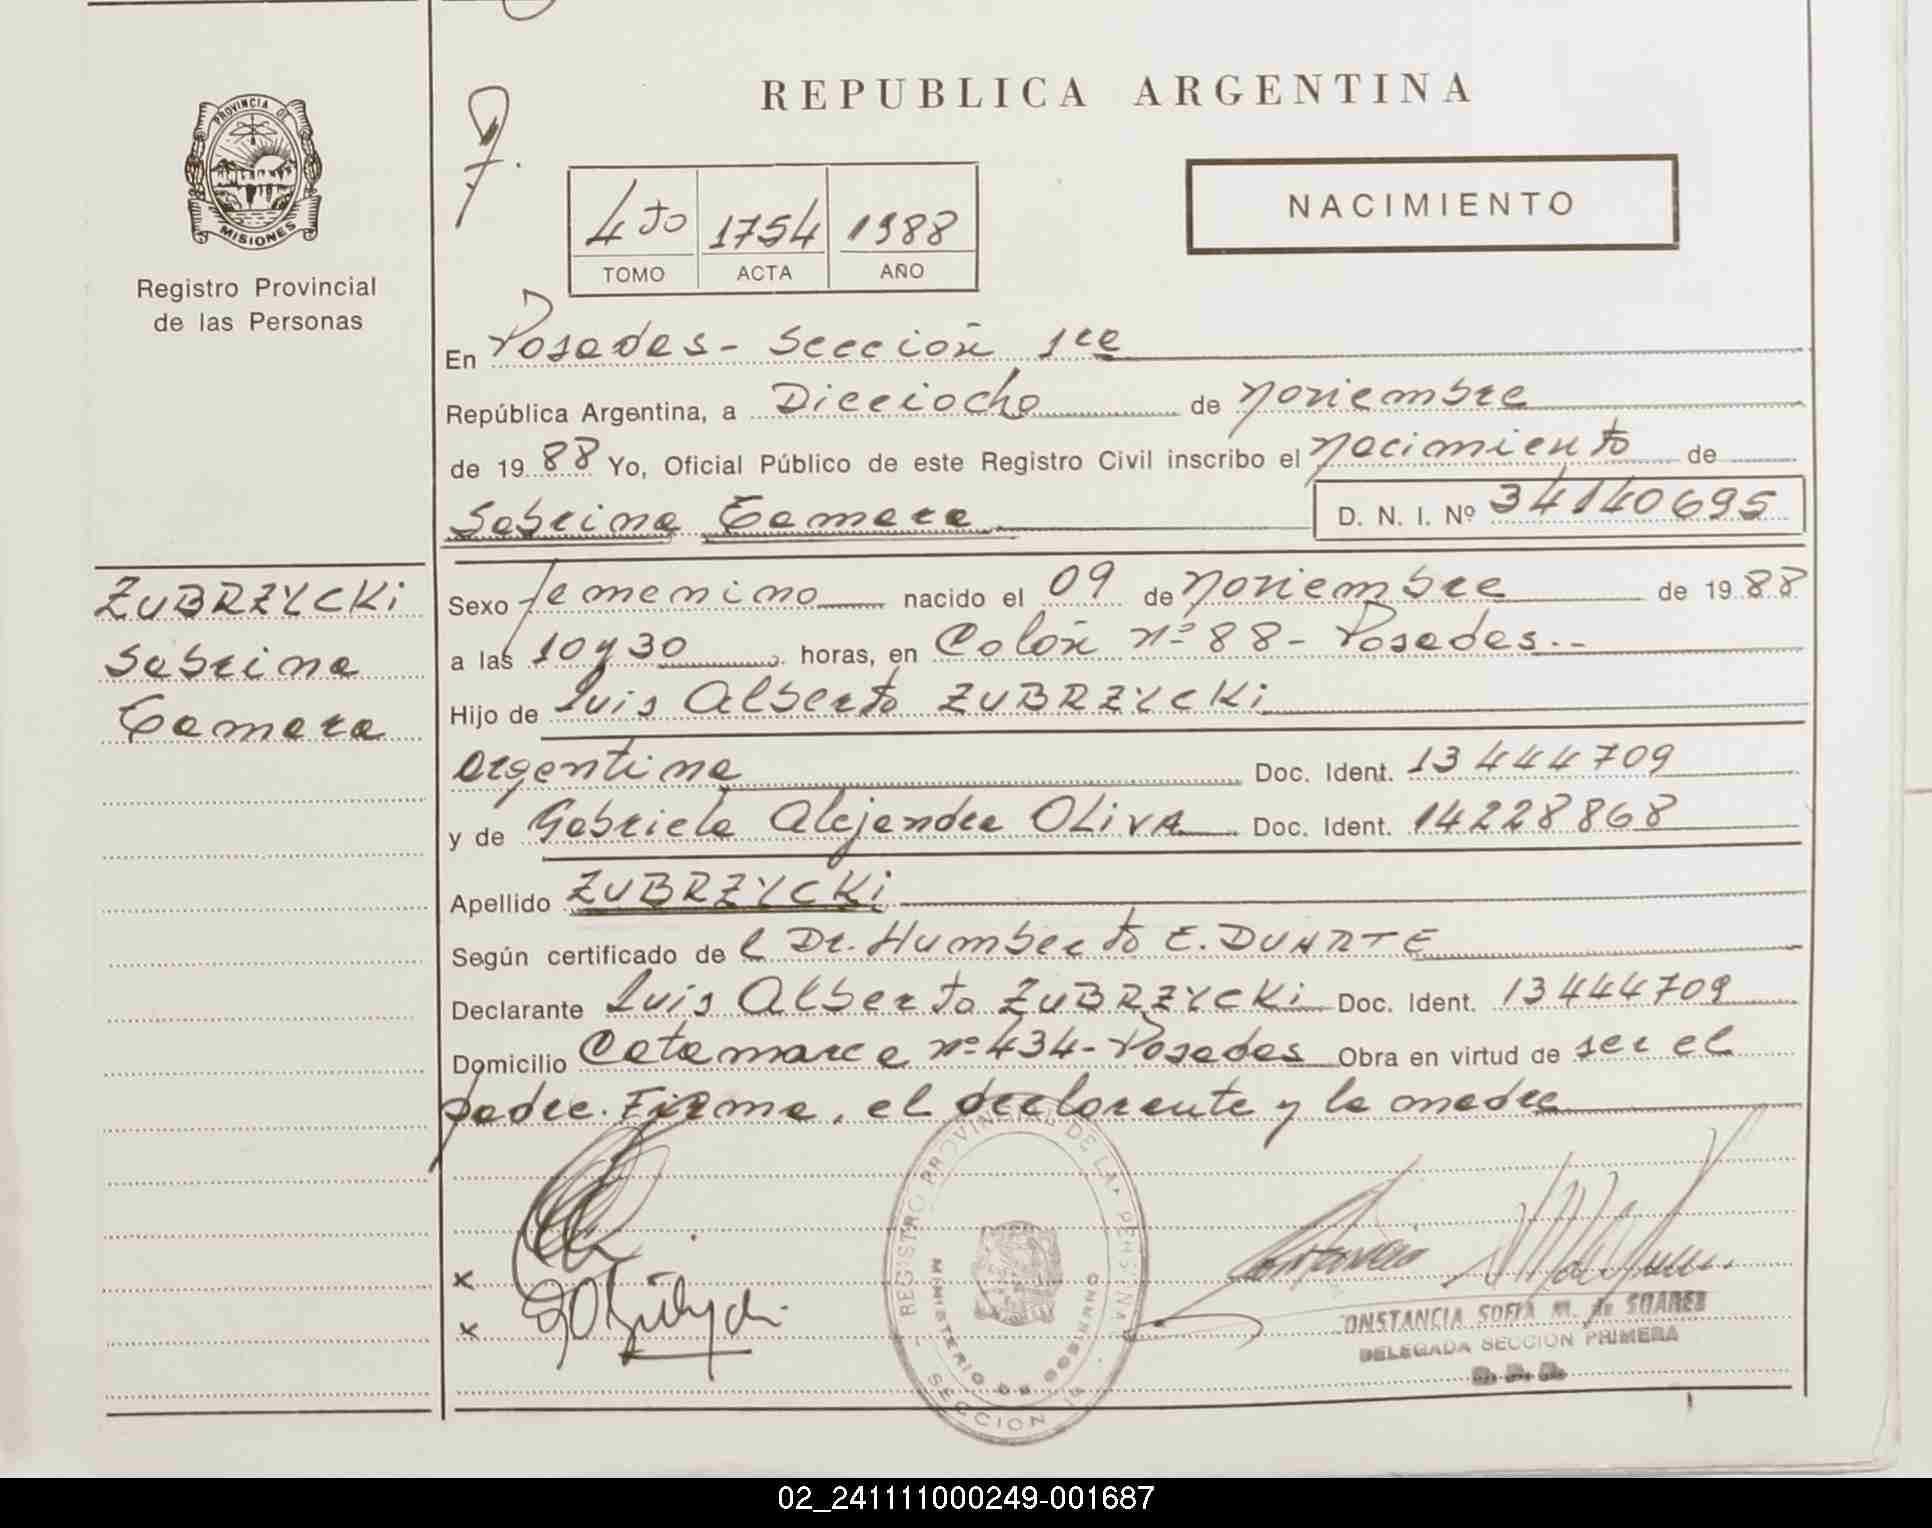 REPUBLICA ARGENTINA
PROVINCIA DE
MISIONES
Registro Provincial
de las Personas
4to 1754 1988
TOMO ACTA AÑO
NACIMIENTO
En Posadas - Sección 1ra
República Argentina, a Dieciocho de noviembre
de 1988 Yo, Oficial Público de este Registro Civil inscribo el nacimiento de
Sabrina Tamara D. N. I. Nº 34140695
ZUBRZYCKi
Sabrina
Tamara
Sexo femenino nacido el 09 de noviembre de 1988
a las 10 y 30 horas, en Colón nº 88 - Posadas.-
Hijo de Luis Alberto ZUBRZYCKi
argentina Doc. Ident. 13444709
y de Gabriela Alejandra OLiVA Doc. Ident. 14228868
Apellido ZUBRZYCKi
Según certificado del Dr. Humberto E. DUARTE
Declarante Luis Alberto ZUBRZYCKi Doc. Ident. 13444709
Domicilio Catamarca nº 434 - Posadas Obra en virtud de ser el
padre. Firma, el declarante y la madre
x
x
REGISTRO PROVINCIAL DE LAS PERSONAS
MINISTERIO DE GOBIERNO
SECCION 1ª
CONSTANCIA SOFIA M. de SUAREZ
DELEGADA SECCION PRIMERA
02_241111000249-001687